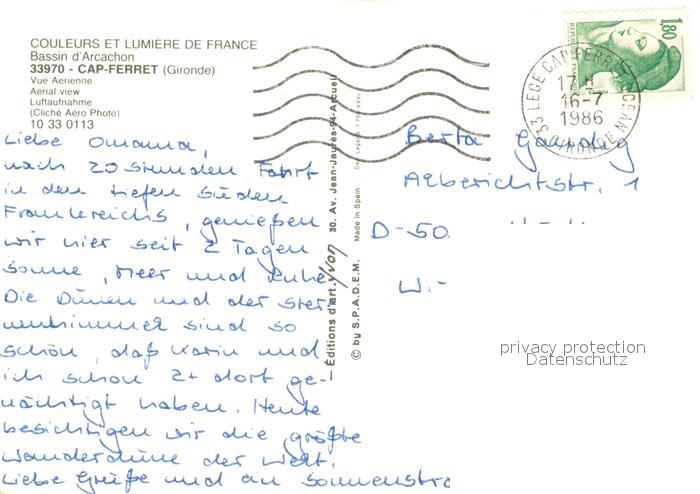 COULEURS ET LUMIÈRE DE FRANCE
Bassin d'Arcachon
33970 - CAP-FERRET (Gironde)
Vue Aerienne
Aerial view
Luftaufnahme
(Cliché Aero Photo)
10 33 0113
Liebe Omama,
nach 20 Stunden Fahrt
in den tiefen Süden
Frankreichs, genießen
wir hier seit 2 Tagen
Sonne, Meer und Ruhe.
Die Dünen und der Ster-
nenhimmel sind so
schön, daß Karin und
ich schon 2x dort ge-
nächtigt haben. Heute
besichtigen wir die größte
Wanderdüne der Welt.
Liebe Grüße und an Sonnenstra
— Éditions d'art Yvon 30. Av. Jean-Jaurès-94-Arcueil
© by S.P.A.D.E.M. Made in Spain
1,80
33 LEGE CAP FERRET OCEAN
17 H
16-7
1986
GIRONDE
Berta
Alberichtstr. 1
D-50
W.-
privacy protection
Datenschutz